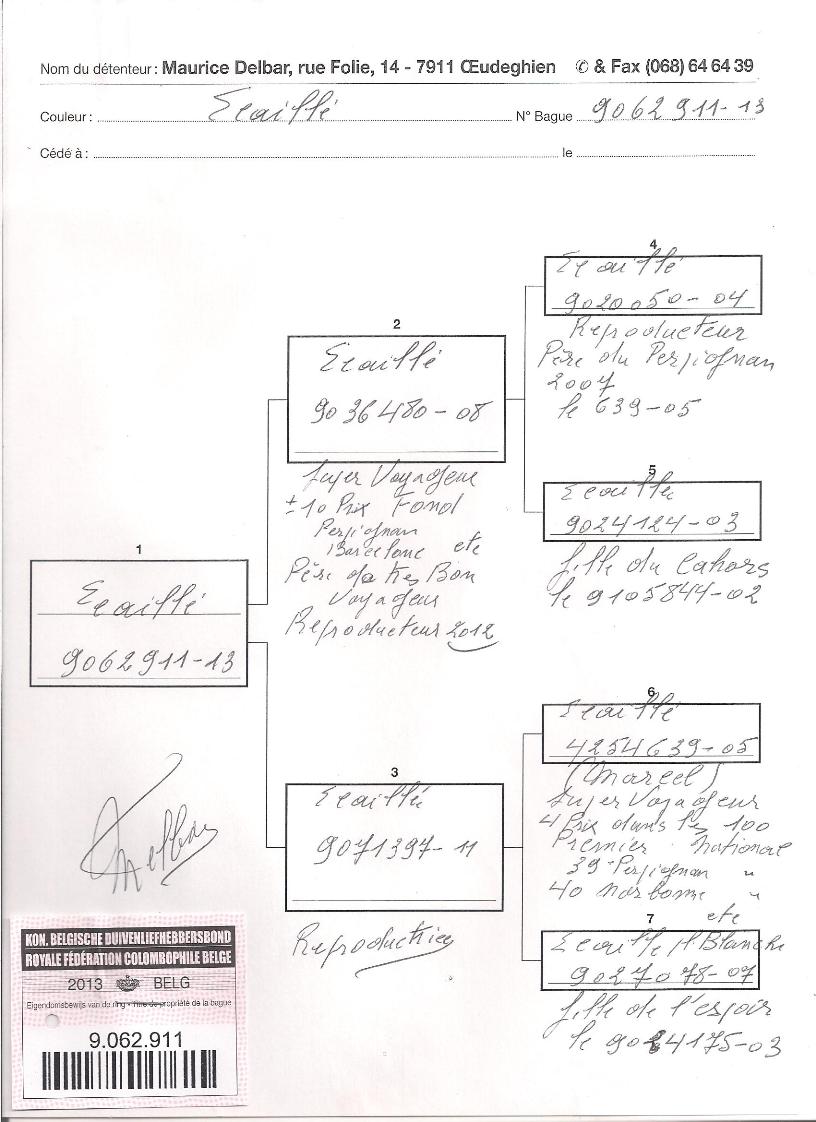 Nom du détenteur : Maurice Delbar, rue Folie, 14 - 7911 Œudeghien ✆ & Fax (068) 64 64 39
Couleur : Ecaillé N° Bague 9062911-13
Cédé à : le
4
Ecaillé
9020050-04
Reproducteur
Père du Perpignan
2007
le 639-05
2
Ecaillé
9036480-08
Super Voyageur
±10 Prix Fond
Perpignan
Barcelone etc
Père de tres Bon
Voyageur
Reproducteur 2012
5
Ecaillé
9024124-03
fille du Cahors
le 9105844-02
1
Ecaillé
9062911-13
6
Ecaillé
4254639-05
(Marcel)
Super Voyageur
4 Prix dans les 100
Premier National
39 Perpignan "
40 Narbonne "
etc
3
Ecaillé
9071397-11
Reproductrice
7
Ecaille pl Blanche
9027078-07
fille de l'espoir
le 9024175-03
Delbar
KON. BELGISCHE DUIVENLIEFHEBBERSBOND
ROYALE FÉDÉRATION COLOMBOPHILE BELGE
2013 BELG
Eigendomsbewijs van de ring - Titre de propriété de la bague
9.062.911